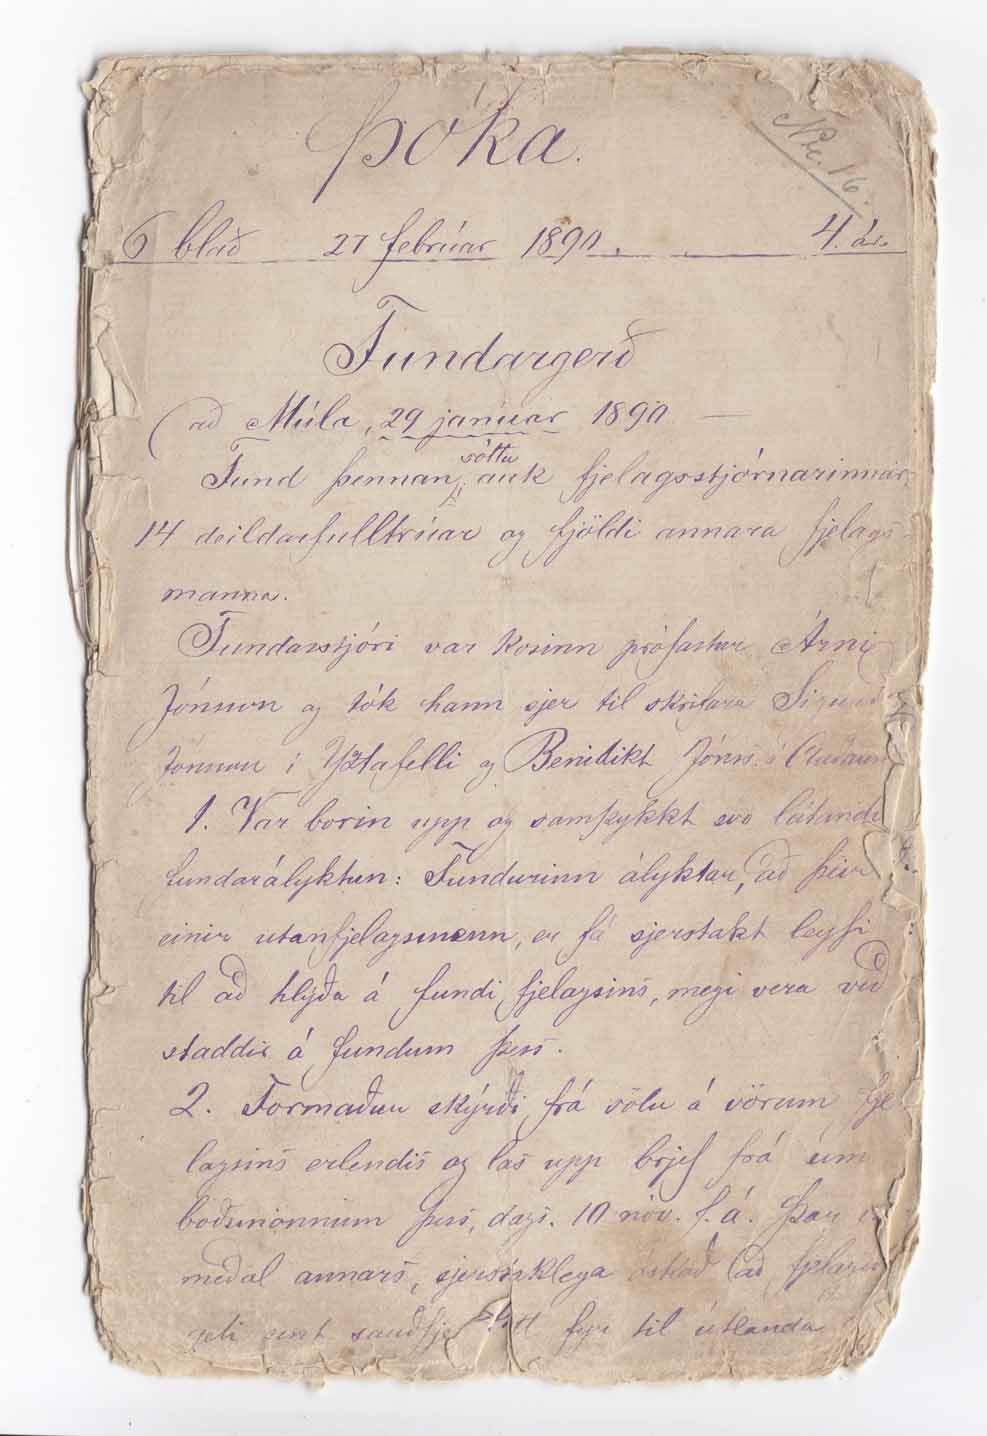 Þóka.
Nr. 16.
6 blað 27 febrúar 1890. 4. ár.
Fundargerð
að Múla, 29 januar 1890 —
sóttu
Fund þennan, auk fjelagsstjórnarinnar,
14 deildarfulltrúar og fjöldi annara fjelags-
manna.
Fundarstjóri var kosinn prófastur Árni
Jónsson og tók hann sjer til skrifara Sigurð
Jónsson í Yztafelli og Benidikt Jónss. á Auðnum
1. Var borin upp og samþykkt svo látandi
fundarályktun: Fundurinn ályktar, að þeir
einir utanfjelagsmenn, er fá sjerstakt leyfi
til að hlýða á fundi fjelagsins, megi vera við
staddir á fundum þess.
2. Formaður skýrði frá sölu á vörum fje
lagsins erlendis og las upp brjef frá um
boðsmönnum þess, dags. 10 nóv. f. á. Þar
meðal annars, sjerstaklega óskað að fjelagið
geti sent sauðfje sitt fyr til útlanda